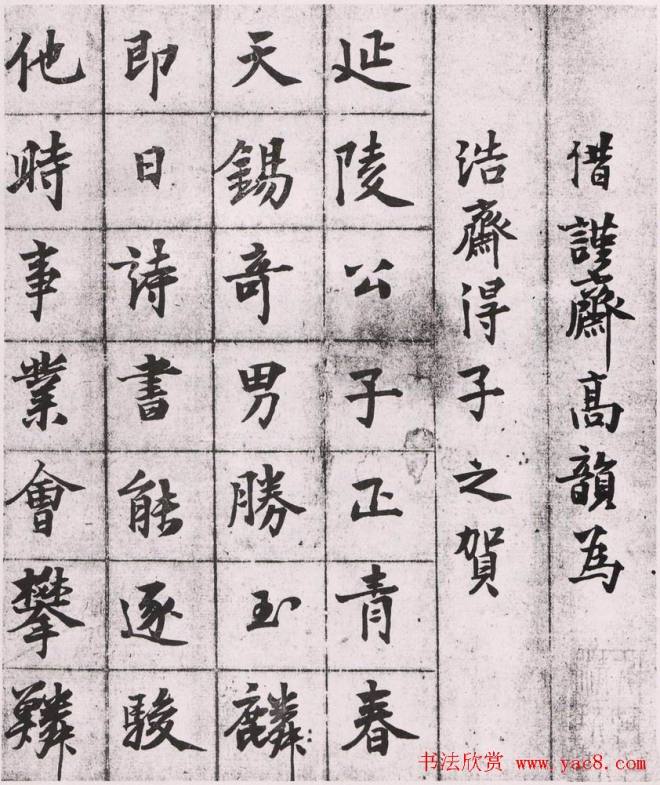 借謹齋高韻為
浩齋得子之賀
延陵公子正青春
天錫奇男勝玉麟
即日詩書能逐駿
他時事業會攀鱗
书法欣赏 www.yac8.com